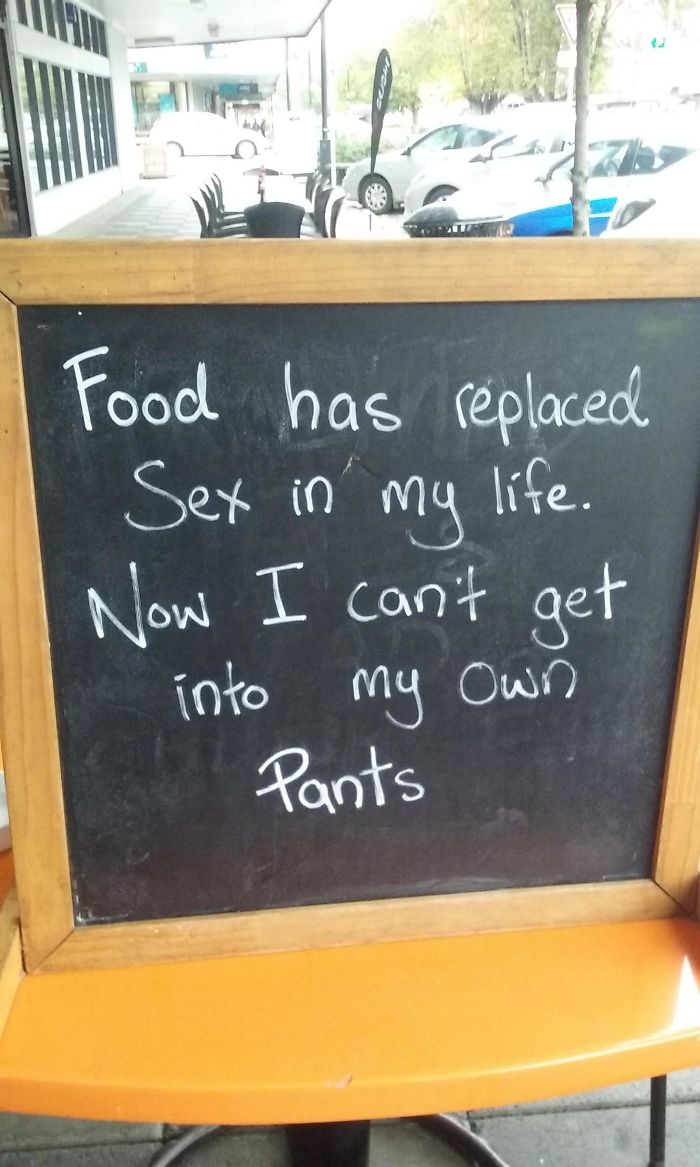 Food has replaced
Sex in my life.
Now I can't get
into my own
Pants